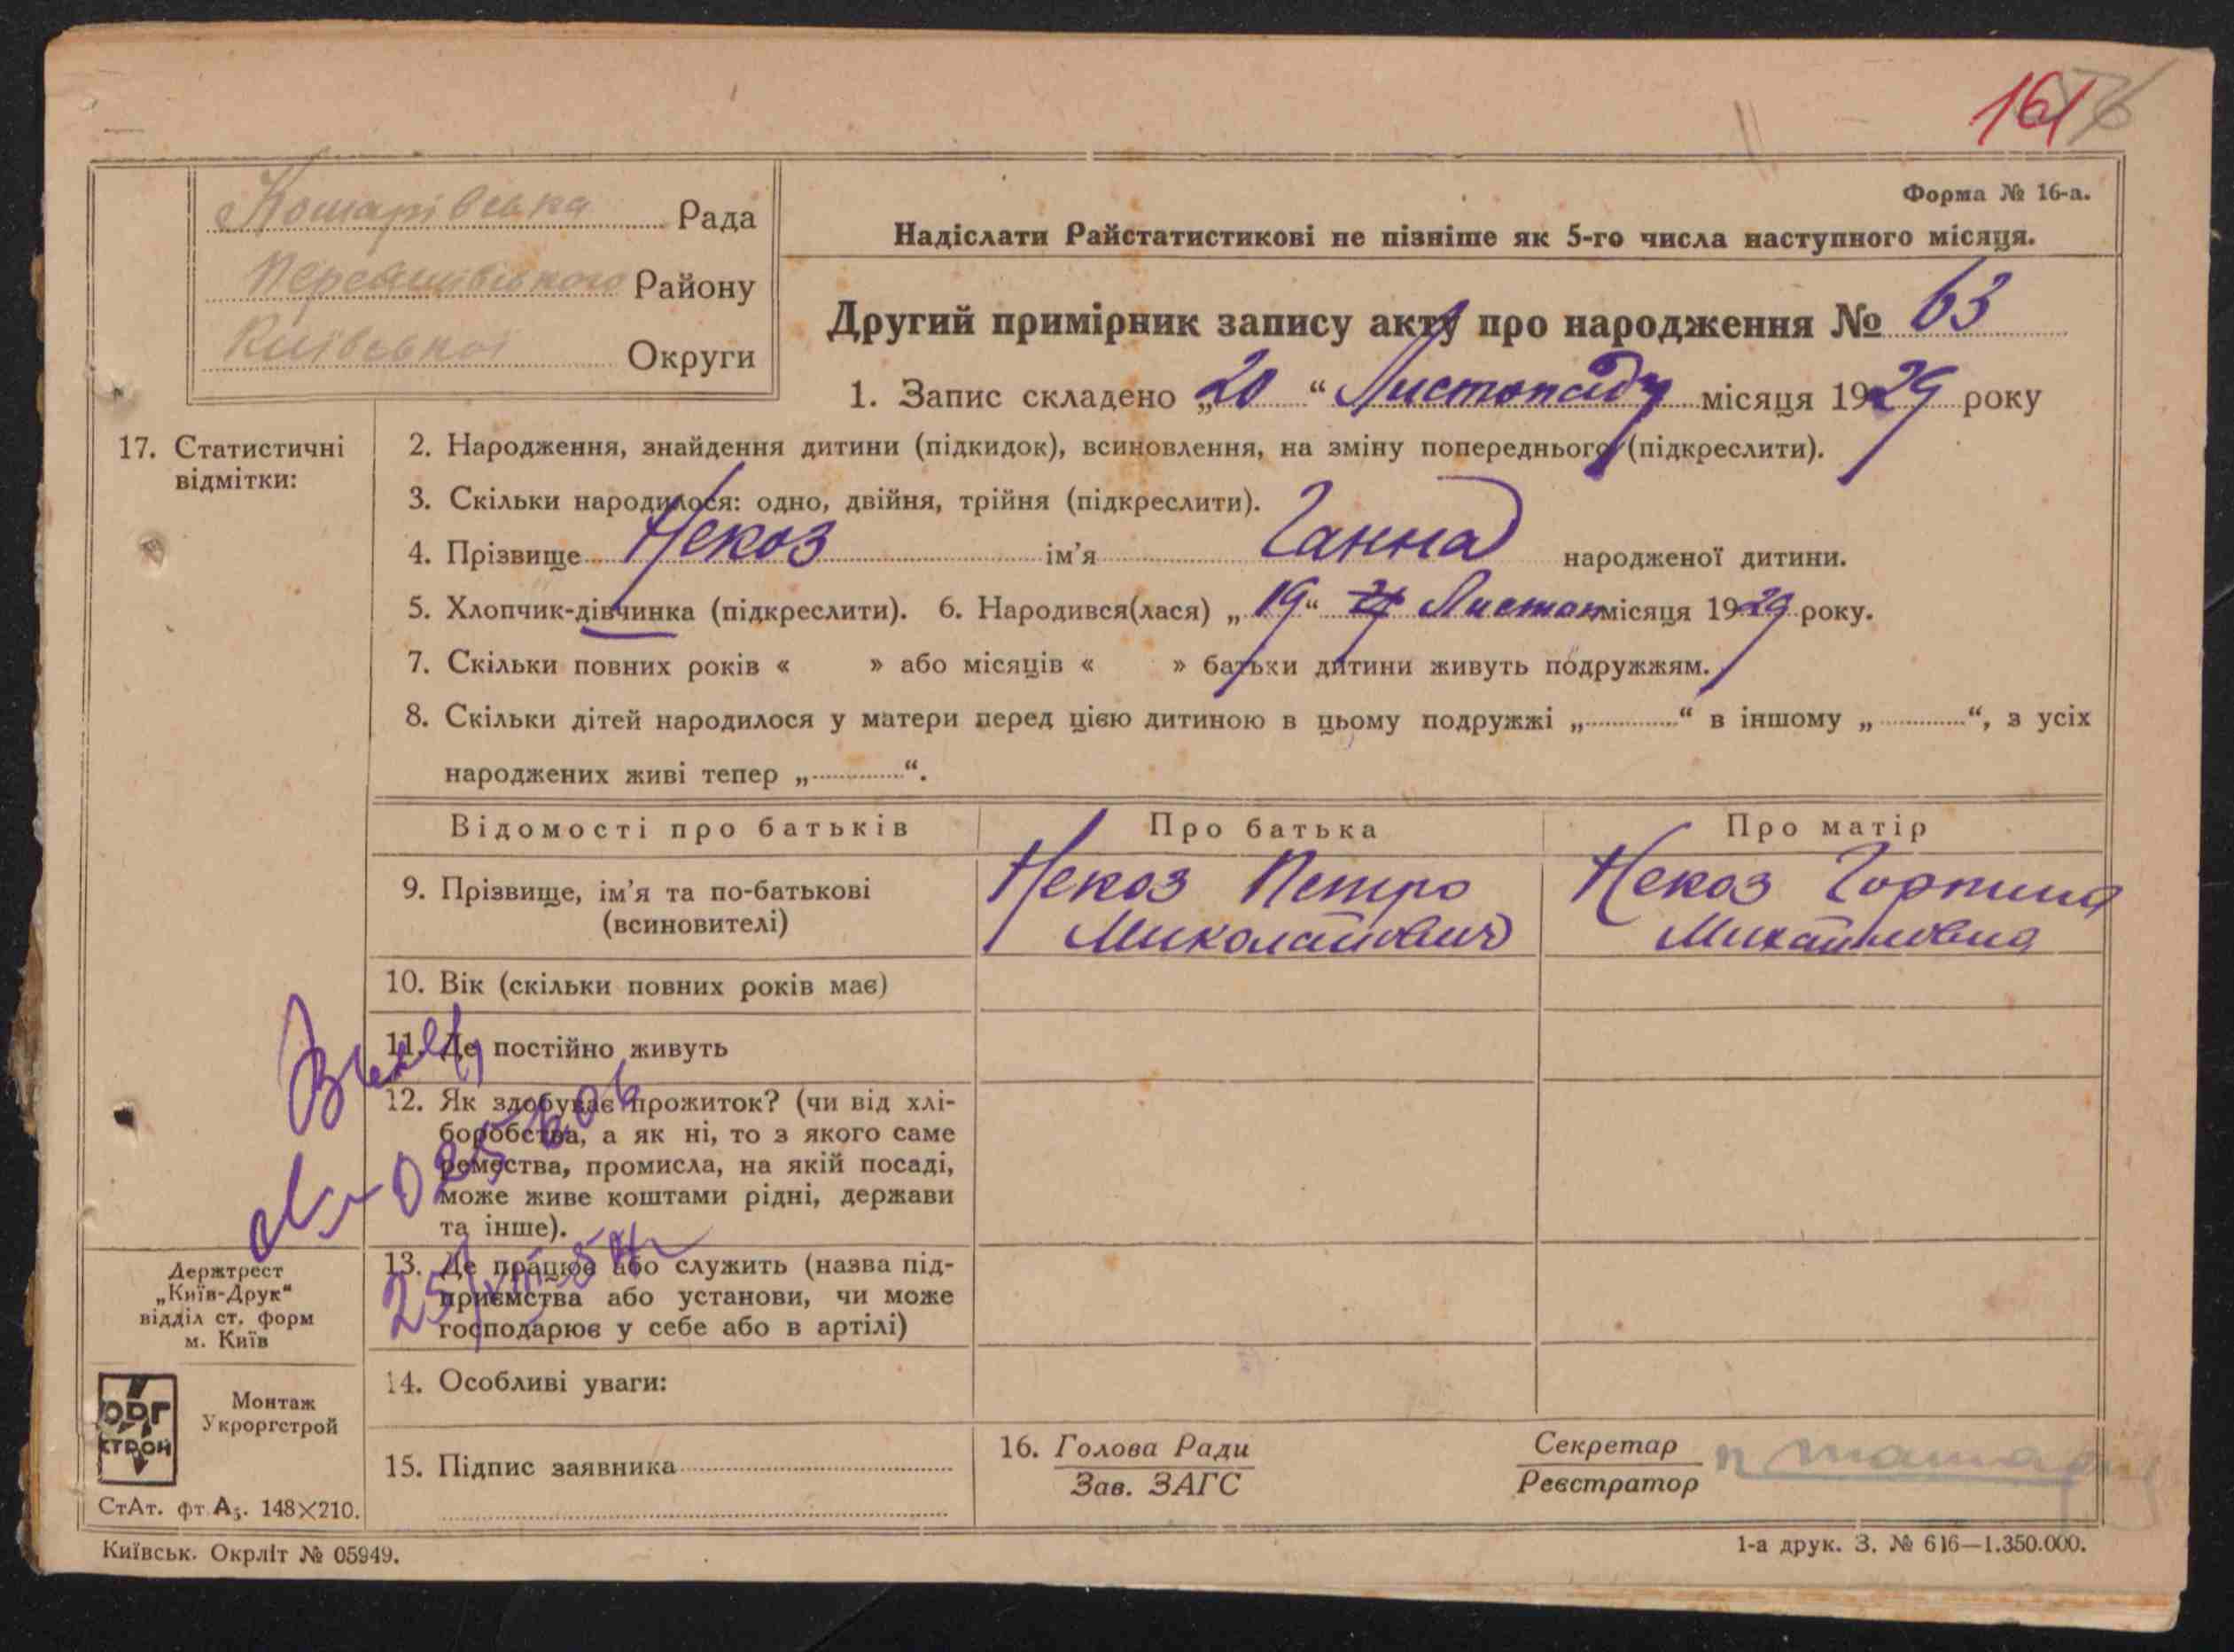 161
Форма № 16-а.
Кошарівська Рада
Надіслати Райстатистикові не пізніше як 5-го числа наступного місяця.
Району
Київської Округи
Другий примірник запису акту про народження № 63
1. Запис складено „20“ Листопаду місяця 1929 року
17. Статистичні відмітки:
2. Народження, знайдення дитини (підкидок), всиновлення, на зміну попереднього (підкреслити).
3. Скільки народилося: одно, двійня, трійня (підкреслити).
4. Прізвище Некоз ім’я Ганна народженої дитини.
5. Хлопчик-дівчинка (підкреслити). 6. Народився(лася) „19“ Листоп місяця 1929 року.
7. Скільки повних років « » або місяців « » батьки дитини живуть подружжям.
8. Скільки дітей народилося у матери перед цією дитиною в цьому подружжі „ “ в іншому „ “, з усіх
народжених живі тепер „ “.
Відомості про батьків Про батька Про матір
9. Прізвище, ім’я та по-батькові Некоз Петро Некоз Горпина
(всиновителі) Миколайович Михайловна
10. Вік (скільки повних років має)
11. Де постійно живуть
12. Як здобуває прожиток? (чи від хлі-
боробства, а як ні, то з якого саме
ремества, промисла, на якій посаді,
може живе коштами рідні, держави
та інше).
13. Де працює або служить (назва під-
приємства або установи, чи може
господарює у себе або в артілі)
14. Особливі уваги:
15. Підпис заявника
16. Голова Ради
Зав. ЗАГС
Секретар
Реєстратор
Держтрест
„Київ-Друк“
відділ ст. форм
м. Київ
ОРГ
СТРОЙ
Монтаж
Укроргстрой
СтАт. фт А₅. 148×210.
Київськ. Окрліт № 05949.
1-а друк. З. № 616—1.350.000.